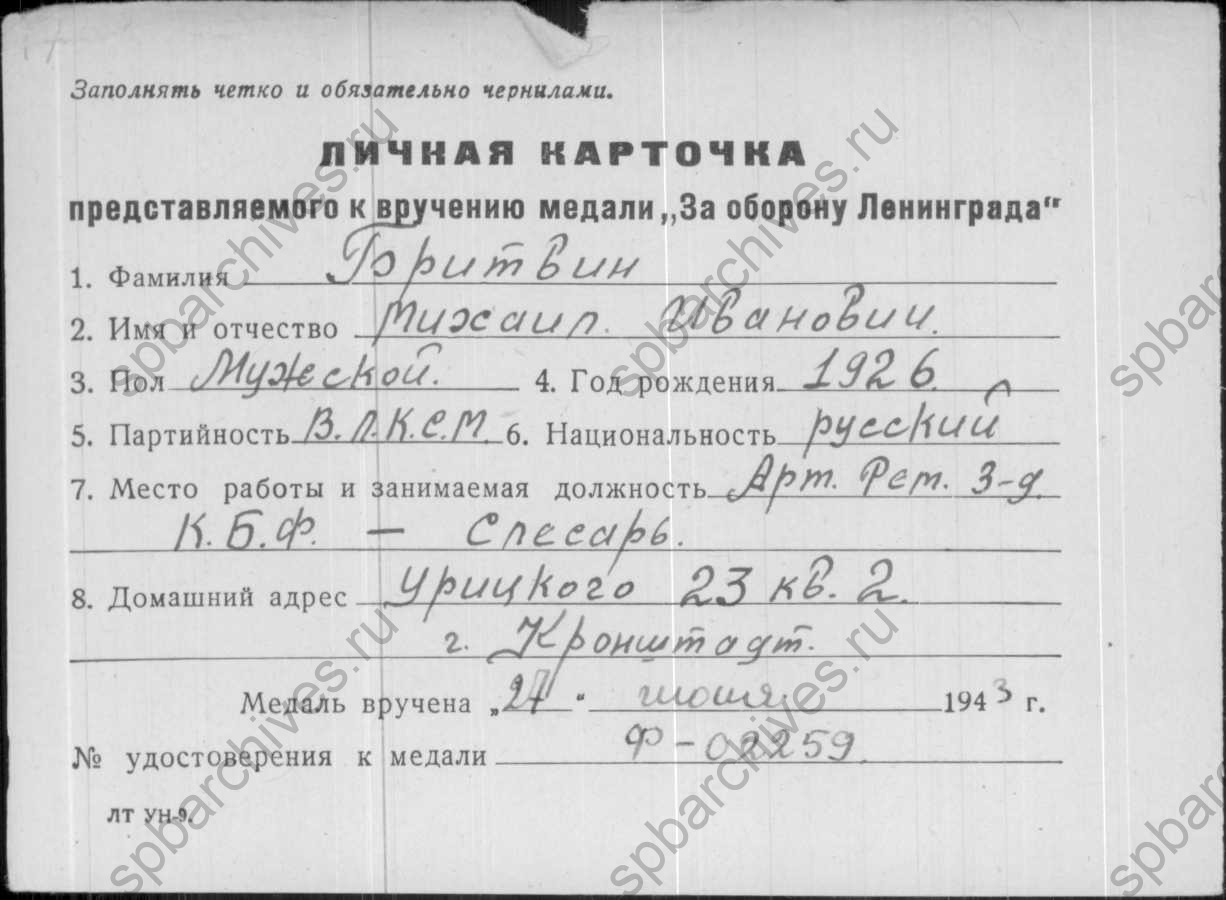 Заполнять четко и обязательно чернилами.
ЛИЧНАЯ КАРТОЧКА
представляемого к вручению медали „За оборону Ленинграда“
1. Фамилия Бритвин
2. Имя и отчество Михаил. Иванович.
3. Пол Мужской. 4. Год рождения 1926
5. Партийность В.Л.К.С.М. 6. Национальность русский
7. Место работы и занимаемая должность Арт. Рем. З-д.
К.Б.Ф. — Слесарь.
8. Домашний адрес Урицкого 23 кв. 2.
г. Кронштадт.
Медаль вручена „ “ июля 1943 г.
№ удостоверения к медали Ф-02259
ЛТ УН-9.
spbarchives.ru